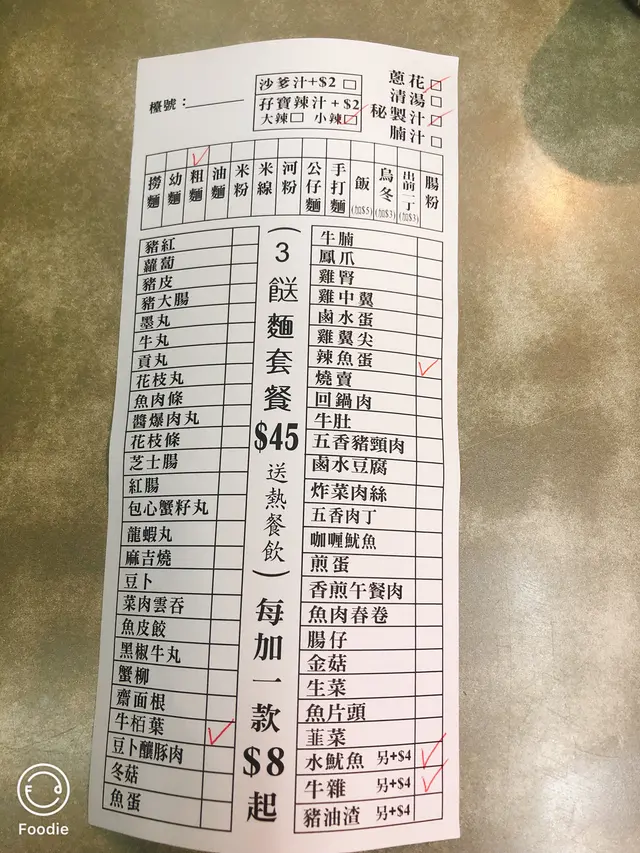 檯號：
沙爹汁+$2
孖寶辣汁+$2
大辣 小辣
蔥花
清湯
秘製汁
腩汁
撈麵
幼麵
粗麵
油麵
米粉
米線
河粉
公仔麵
手打麵
飯(加$5)
烏冬(加$3)
出前一丁(加$3)
腸粉
豬紅
蘿蔔
豬皮
豬大腸
墨丸
牛丸
貢丸
花枝丸
魚肉條
醬爆肉丸
花枝條
芝士腸
紅腸
包心蟹籽丸
龍蝦丸
麻吉燒
豆卜
菜肉雲吞
魚皮餃
黑椒牛丸
蟹柳
齋面根
牛栢葉
豆卜釀豚肉
冬菇
魚蛋
(3餸麵套餐$45送熱餐飲)每加一款$8起
牛腩
鳳爪
雞腎
雞中翼
鹵水蛋
雞翼尖
辣魚蛋
燒賣
回鍋肉
牛肚
五香豬頸肉
鹵水豆腐
炸菜肉絲
五香肉丁
咖喱魷魚
煎蛋
香煎午餐肉
魚肉春卷
腸仔
金菇
生菜
魚片頭
韮菜
水魷魚 另+$4
牛雜 另+$4
豬油渣 另+$4
Foodie